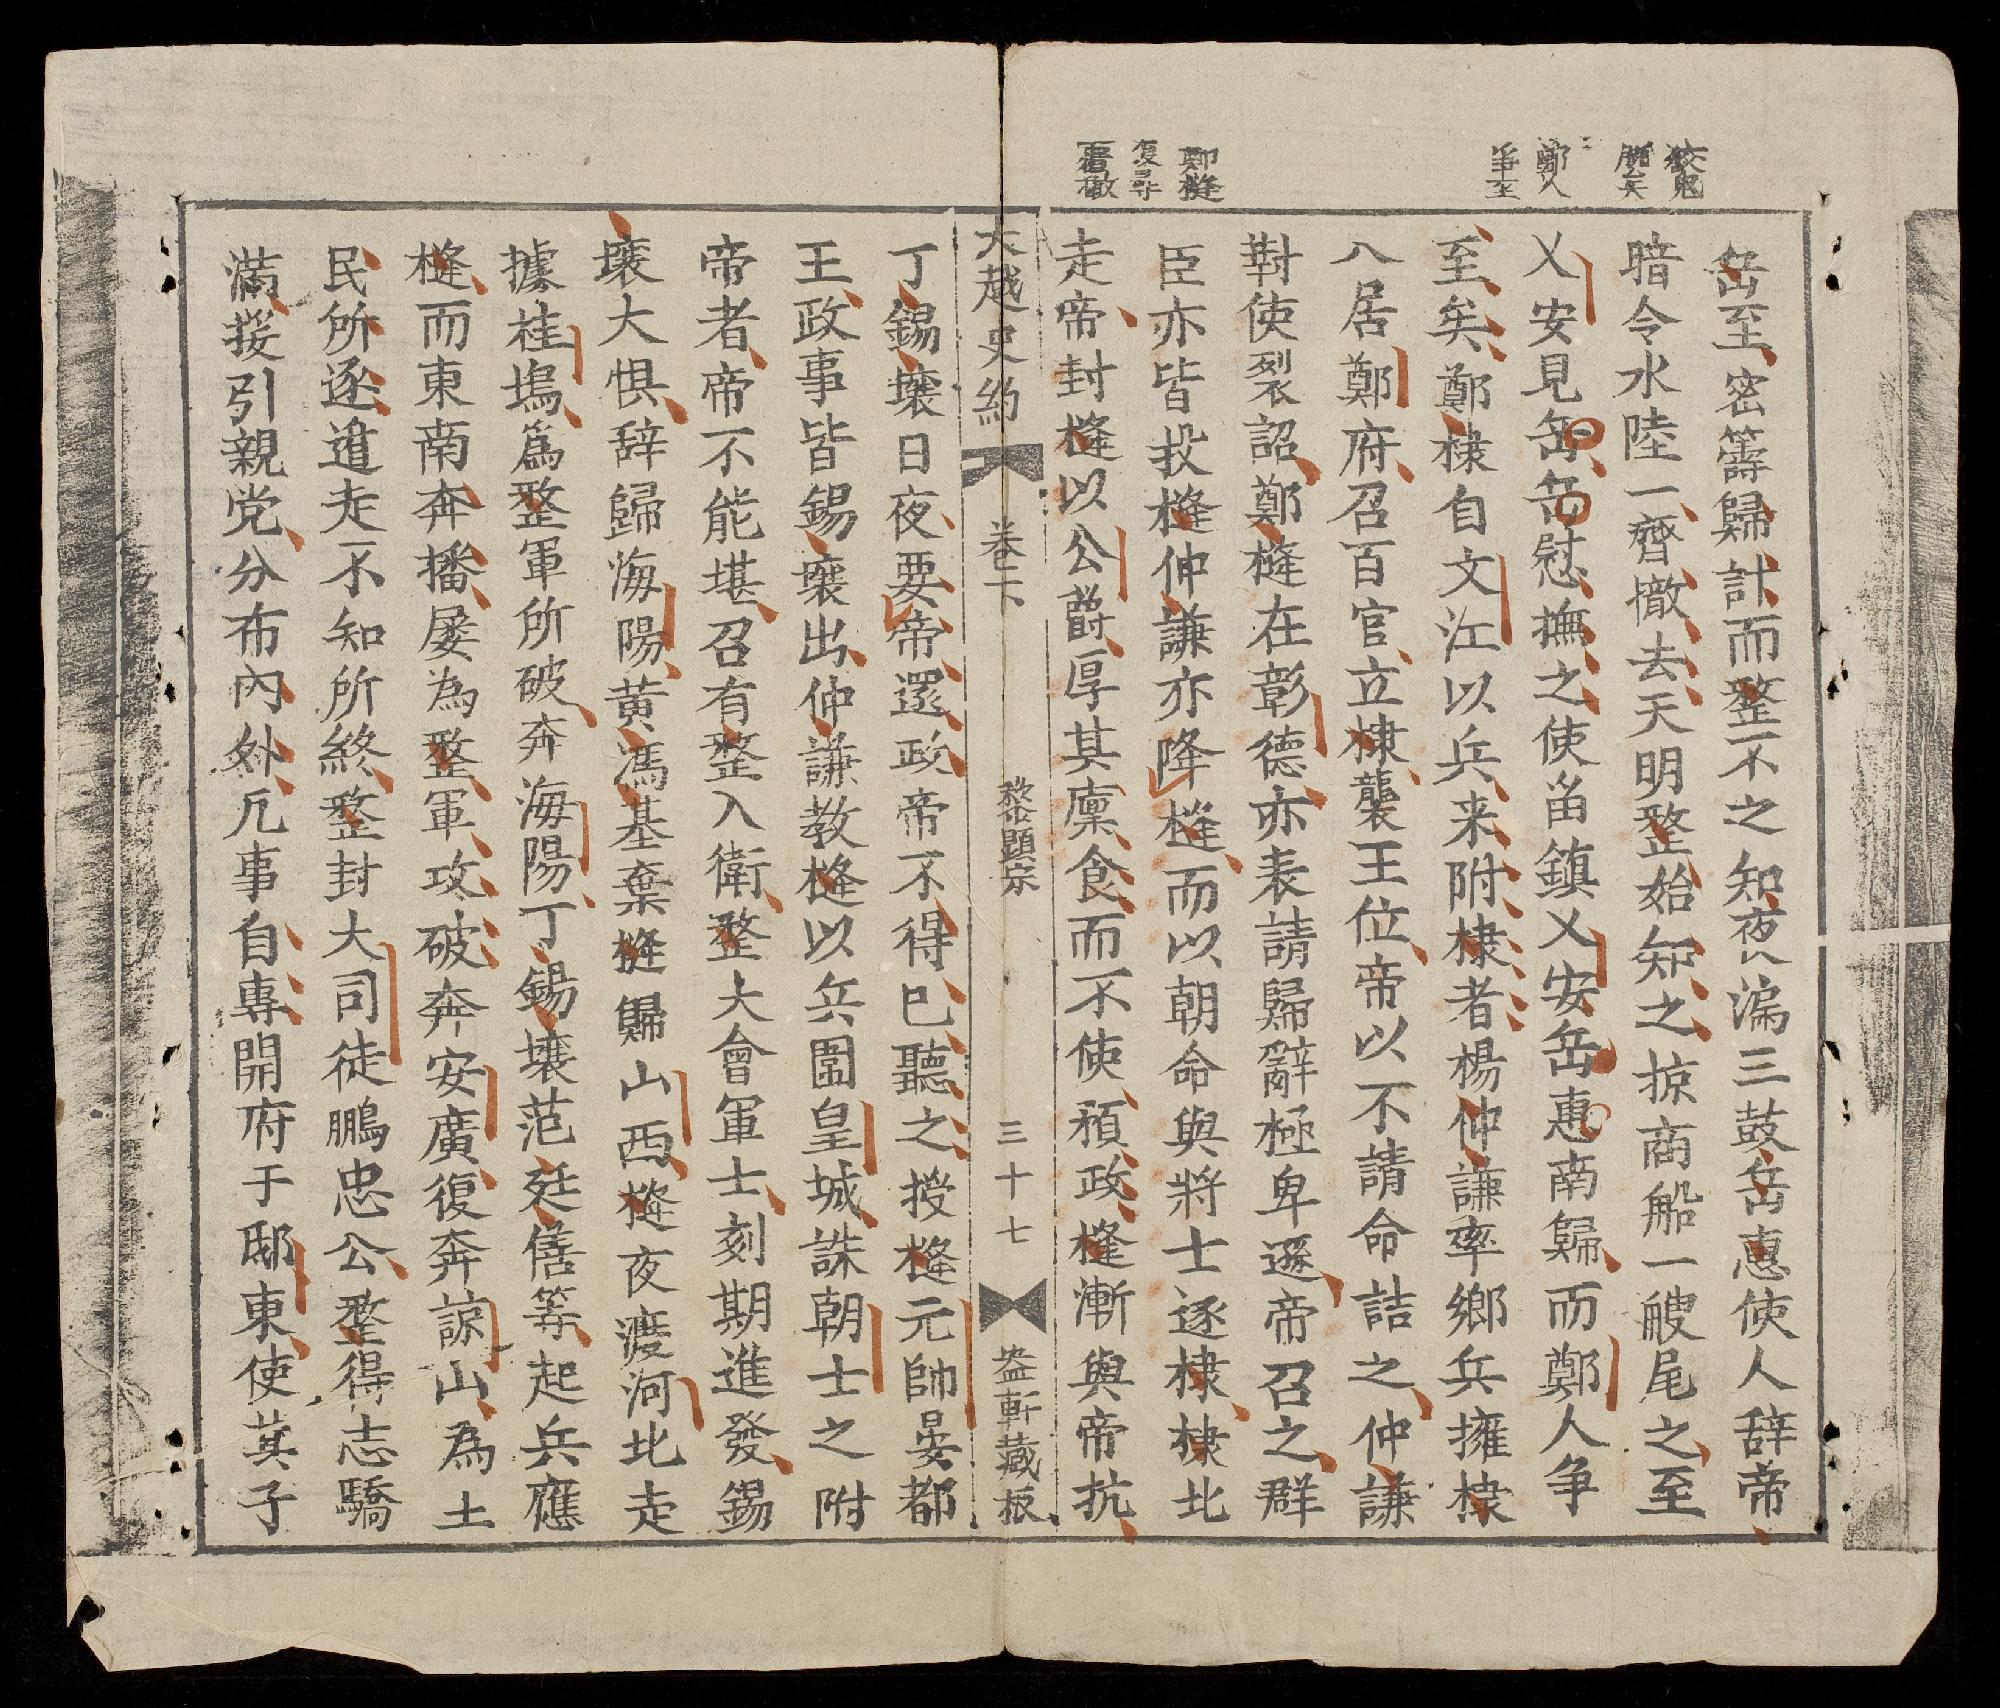 岳至密籌歸計而整不之知夜以漏三鼓岳惠使人辞帝
暗令水陸一齊撤去天明整始知之掠商船一艘尾之至
乂安見岳岳慰撫之使畱鎮乂安岳惠南歸而鄭人争
至矣鄭棣自文江以兵来附棣者楊仲謙率鄉兵擁棣
入居鄭府召百官立棣襲王位帝以不請命詰之仲謙
對使裂詔鄭槰在彰德亦表請歸辭極卑遜帝召之群
臣亦皆投槰仲謙亦降槰而以朝命與將士逐棣棣北
走帝封槰以公爵厚其廩食而不使預政槰漸與帝抗
鄭人
争至
鄭槰
復尋
覆轍
大越史約 卷下 黎顯宗 三十七 盎軒藏板
丁錫壤日夜要帝還政帝不得已聽之授槰元帥晏都
王政事皆錫壤出仲謙教槰以兵圍皇城誅朝士之附
帝者帝不能堪召有整入衛整大會軍士刻期進發錫
壤大惧辞歸海陽黄馮基棄槰歸山西槰夜渡河北走
據桂塢為整軍所破奔海陽丁錫壤范廷僐等起兵應
槰而東南奔播屡為整軍攻破奔安廣復奔諒山為土
民所逐道走不知所終整封大司徒鵬忠公整得志驕
滿援引親党分布內外凡事自專開府于邸東使其子